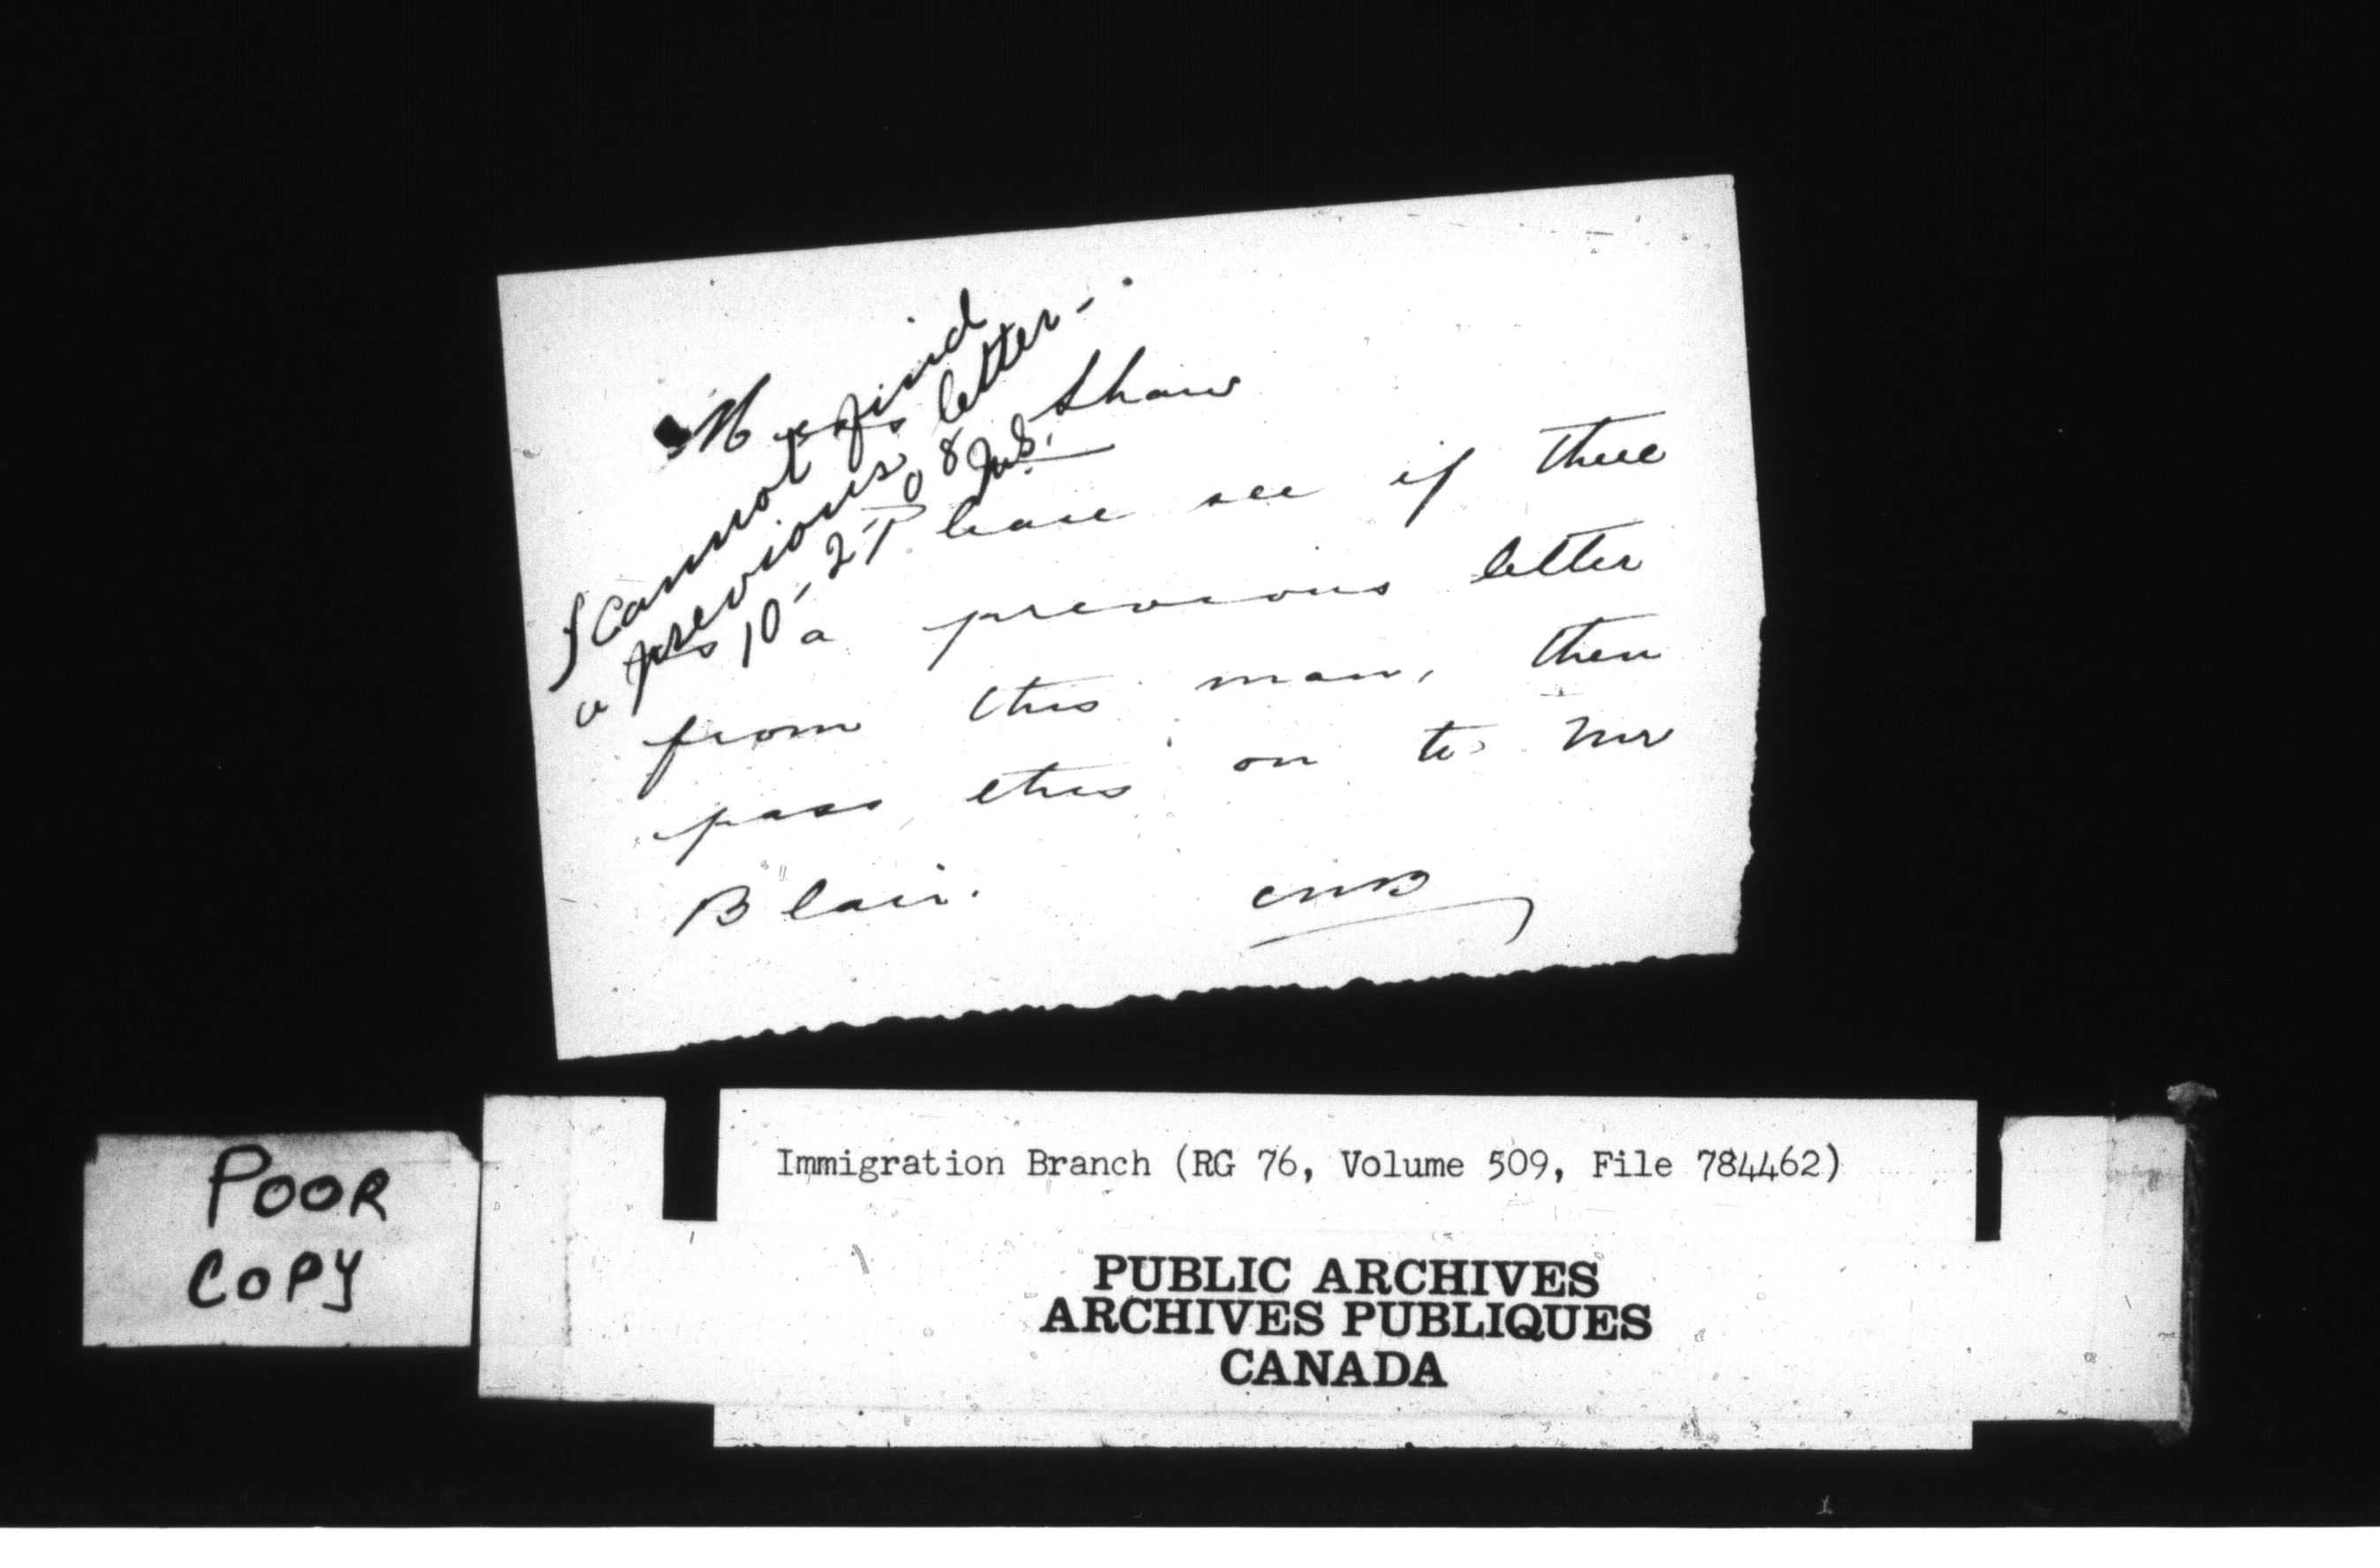 I cannot find
a previous letter.
Shaw
Please see if there
a previous letter
from this man, then
pass this on to Mr
Blair. CMB
POOR
COPY
Immigration Branch (RG 76, Volume 509, File 784462)
PUBLIC ARCHIVES
ARCHIVES PUBLIQUES
CANADA